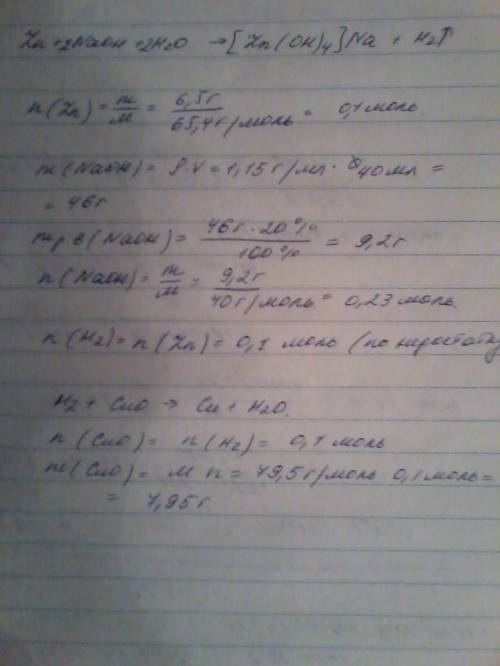 Zn+2NaOH+2H₂O → [Zn(OH)₄]Na + H₂↑
n(Zn) = m/M = 6,5г / 65,4г/моль = 0,1 моль.
m(NaOH) = ρ·V = 1,15 г/мл · 40 мл =
= 46г
m р.в(NaOH) = 46г · 20% / 100% = 9,2г
n(NaOH) = m/M = 9,2г / 40г/моль = 0,23 моль.
n(H₂) = n(Zn) = 0,1 моль (по недостатку
H₂ + CuO → Cu + H₂O.
n(CuO) = n(H₂) = 0,1 моль
m(CuO) = M n = 79,5 г/моль 0,1 моль =
= 7,95 г.